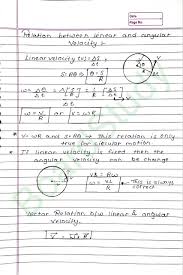 Date
Page No.
Relation between linear and angular
velocity :-
Linear velocity (v) = ΔS/Δt
S = RΘ ⇒ Θ = S/R
ω = ΔΘ/Δt = Δ/Δt [S/R] = 1/R ΔS/Δt
ω = V/R or V = ωR
* V = ωR and S = RΘ → This relation is only
true for circular motion
* If linear velocity is fixed then the
angular velocity can be change
ω = V⊥/R
This is always
correct
Vector Relation b/w linear & angular
velocity.